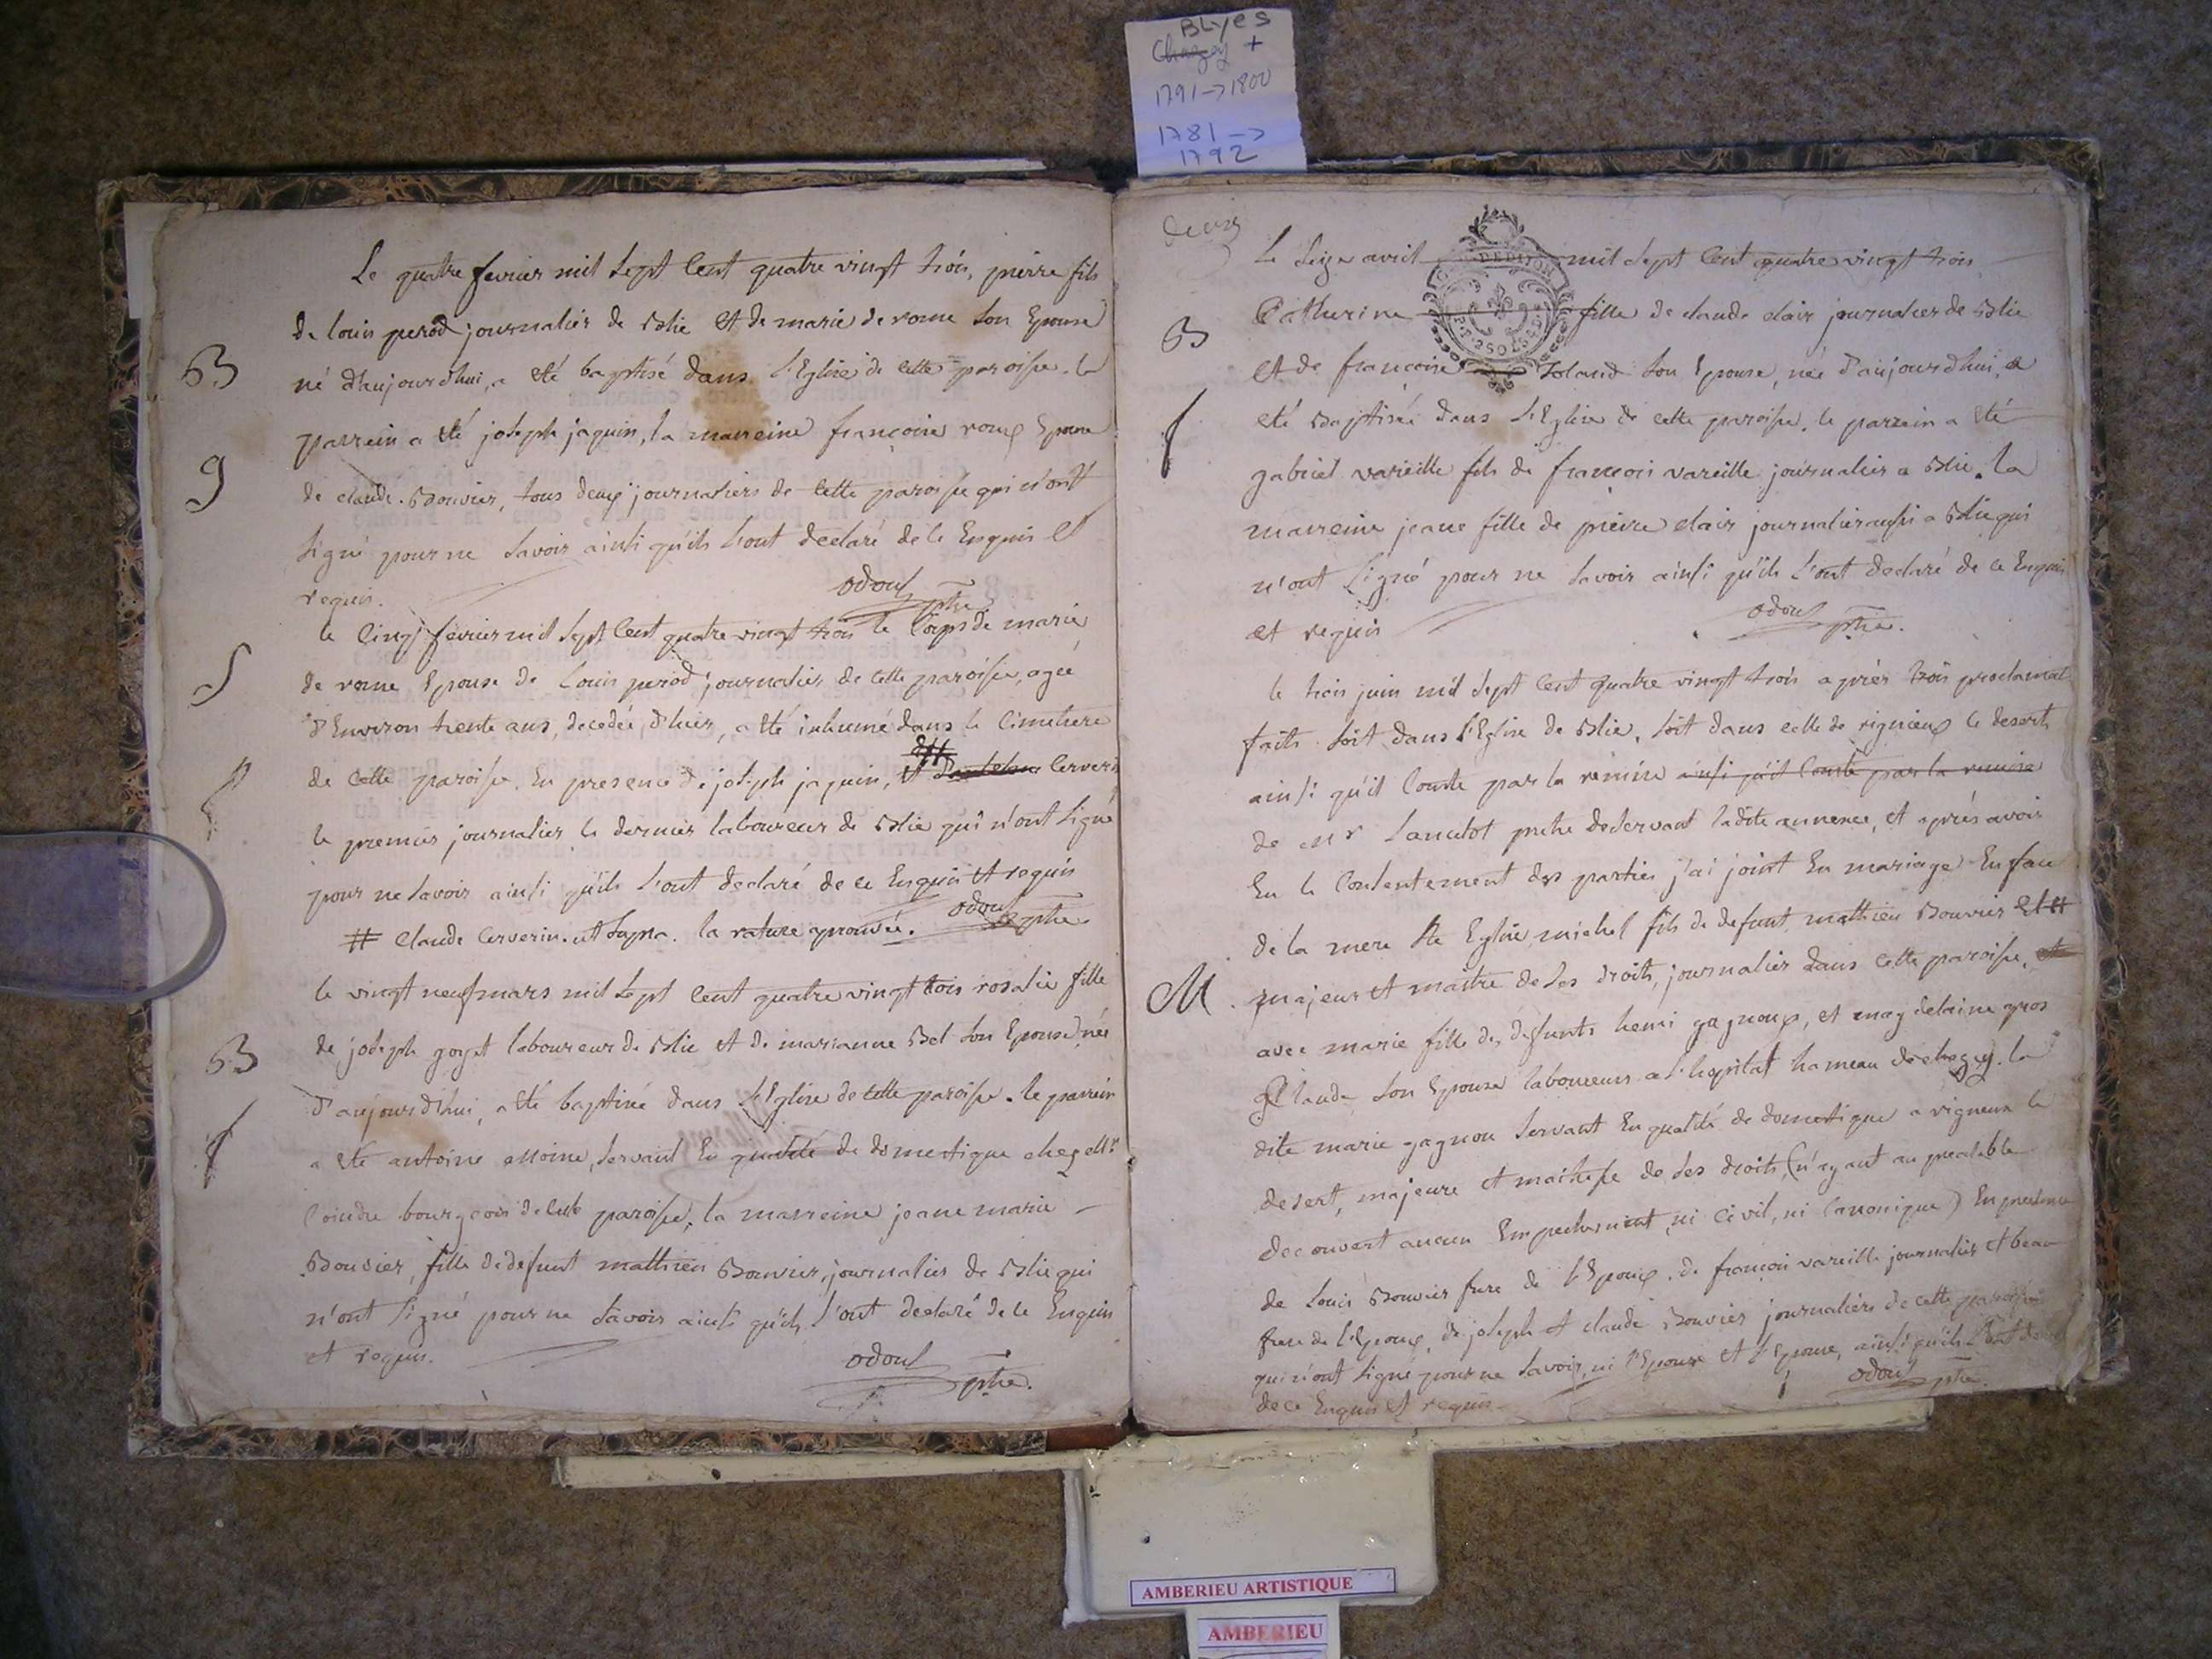 BLyes
Chazey +
1791->1800
1781->
1792
Le quatre fevrier mil sept cent quatre vingt trois, pierre fils
de louis perod journalier de Blie et de marie de rome son Epouse
B
né d'hujourdhui, a eté baptisé dans L'Eglise de cette paroisse. le
parrein a eté joseph jaquin, la marreine francoise roux Epouse
g
de claude Bouvier, tous deux journaliers de cette paroisse qui n'ont
signé pour ne savoir ainsi qu'ils l'ont declaré de ce Enquis et
requis.
odoul ptre
le cinq fevrier mil sept cent quatre vingt trois le corps de marie
S
de rome Epouse de Louis perod journalier de cette paroisse, ageé
d'Environ trente ans, decedée d'hier, a eté inhumé dans le cimetiere
de cette paroisse. En presence de joseph jaquin, et cerverin
f
le premier journalier le dernier laboureur de Blie qui n'ont signé
pour ne savoir ainsi qu'ils l'ont declaré de ce Enquis et requis
# claude cerverin. ut supra. la rature aprouvée.
odoul ptre
le vingt neuf mars mil sept cent quatre vingt trois rosalie fille
B
de joseph goyet laboureur de Blie et de marianne Bel son Epouse née
d'aujourd'hui, a eté baptisée dans L'Eglise de cette paroisse. le parrein
f
a eté antoine servant En qualité de domestique chez Mr
bourgeois de cette paroisse, la marreine jeane marie
Bouvier, fille de defunt mathieu Bouvier, journalier de Blie qui
n'ont signé pour ne savoir ainsi qu'ils l'ont declaré de ce Enquis
et requis.
odoul ptre.
deux
Le seize avril mil sept cent quatre vingt trois
Catherine fille de claude clair journalier de Blie
B
et de francoise Joland son Epouse, née d'aujourdhui, a
f
eté Baptisée dans L'Eglise de cette paroisse. le parrein a eté
gabriel vareille fils de francois vareille journalier a Blie. La
marreine jeane fille de pierre clair journalier aussi a Blie qui
n'ont signé pour ne savoir ainsi qu'ils l'ont declaré de ce Enquis
et requis
odoul ptre.
le trois juin mil sept cent quatre vingt trois après trois proclamat
faits soit dans L'Eglise de Blie, soit dans celle de rignieux le desert,
ainsi qu'il conste par la remise ainsi qu'il conste par la remise
de Mr Lancelot pretre desservant ladite annexe, et après avoir
Eu le consentement des parties j'ai joint En mariage En face
de la mere Ste Eglise michel fils de defunt mathieu Bouvier et #
M
majeur et maitre de ses droits, journalier dans cette paroisse, et
avec marie fille des defunts henri gagnoux, et magdelaine gros
son Epouse laboureurs a L'hopital hameau de chazey. la
dite marie gagnou servant En qualité de domestique a rigneux le
desert, majeure et maitresse de ses droits, (n'ayant au prealable
decouvert aucun Empechement, ni civil, ni canonique) En presence
de Louis Bouvier frere de l'Epoux, de francois vareille journalier et beau
frere de l'Epoux, de joseph et claude Bouvier journaliers de cette paroisse
qui n'ont signé pour ne savoir, ni l'Epoux et l'Epouse, ainsi qu'ils l'ont de
de ce Enquis et requis
odoul ptre.
AMBERIEU ARTISTIQUE
AMBERIEU